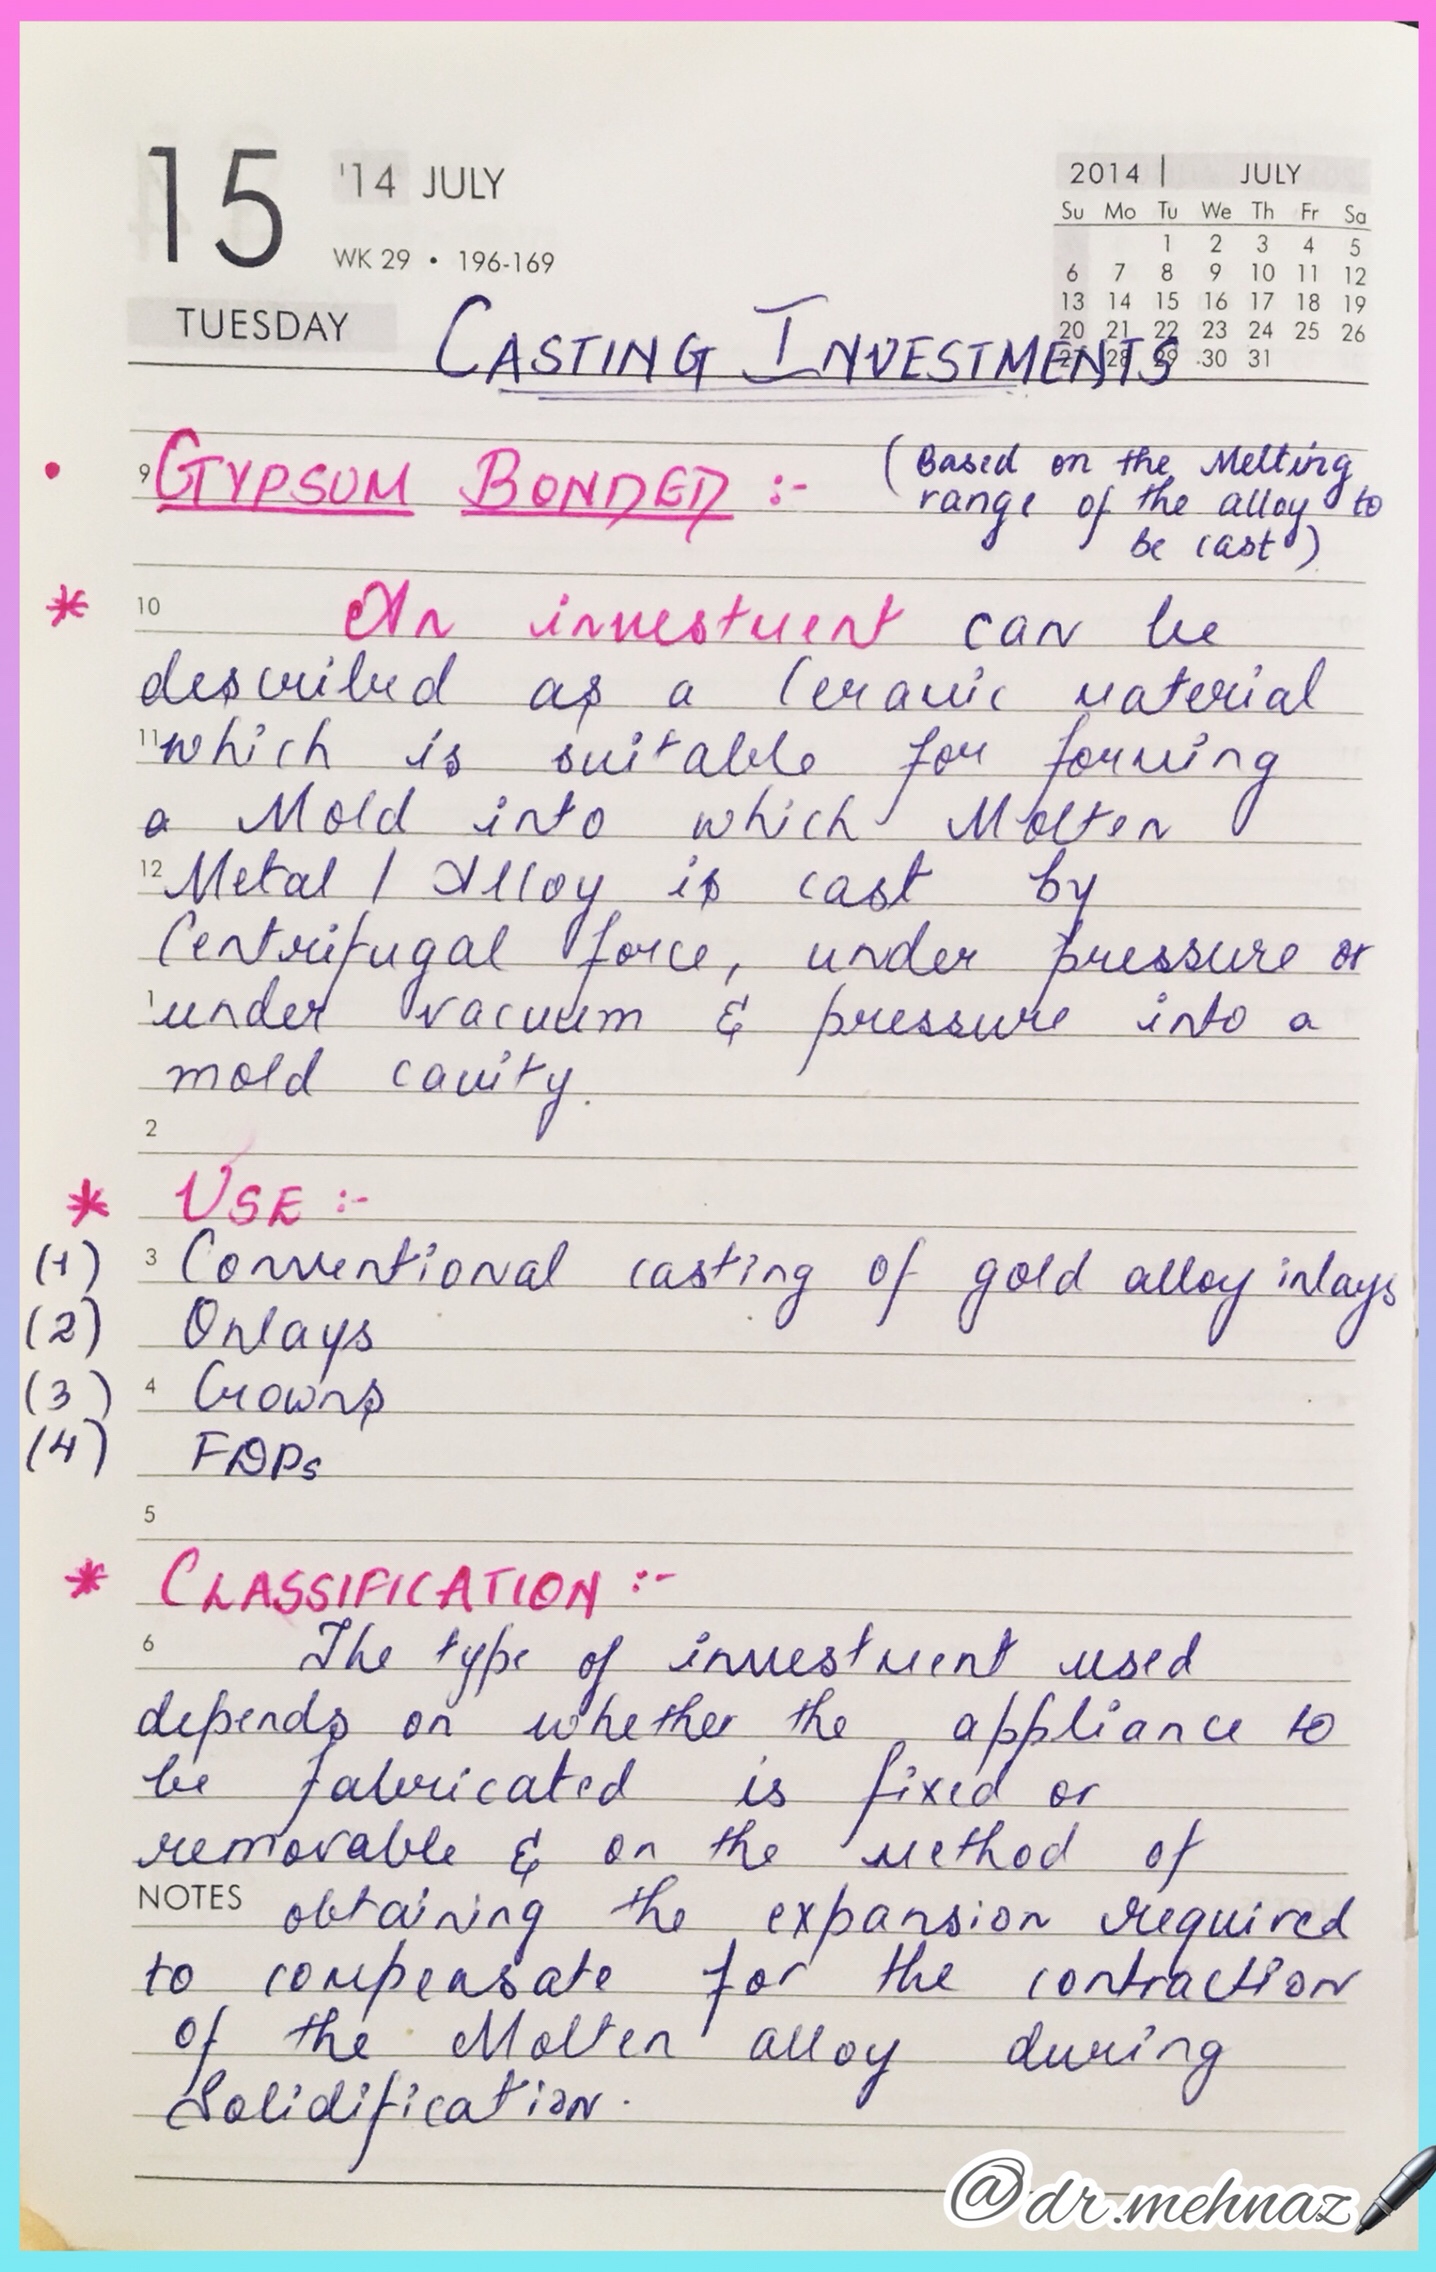 15 '14 JULY
WK 29 • 196-169
TUESDAY
2014 | JULY
Su Mo Tu We Th Fr Sa
1 2 3 4 5
6 7 8 9 10 11 12
13 14 15 16 17 18 19
20 21 22 23 24 25 26
27 28 29 30 31
CASTING INVESTMENTS
• 9 GYPSUM BONDED :- (Based on the Melting
range of the alloy to
be cast)
* 10 An investment can be
described as a Ceramic material
11 which is suitable for forming
a Mold into which Molten
12 Metal / Alloy is cast by
Centrifugal force, under pressure or
1 under vacuum & pressure into a
mold cavity.
2
* USE :-
(1) 3 Conventional casting of gold alloy inlays
(2) Onlays
(3) 4 Crowns
(4) FDPs
5
* CLASSIFICATION :-
6 The type of investment used
depends on whether the appliance to
be fabricated is fixed or
removable & on the method of
NOTES obtaining the expansion required
to compensate for the contraction
of the Molten alloy during
Solidification.
@dr.mehnaz